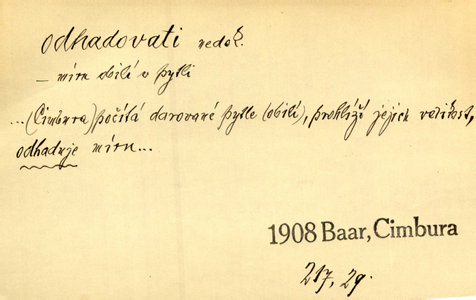 odhadovati nedok.
– míru obilí v pytli
...(Cimbura) počítá darované pytle (obilí), prohlíží jejich velikost,
odhaduje míru...
1908 Baar, Cimbura
217, 29.